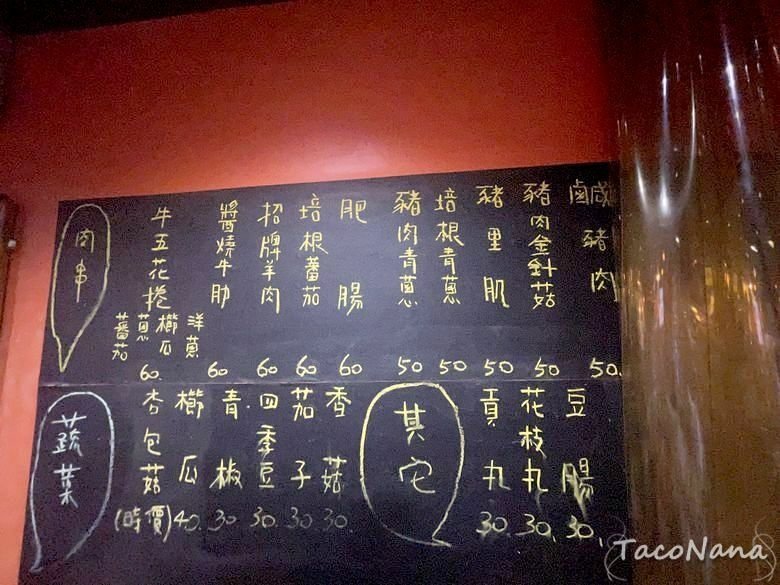 肉串
牛五花捲
蕃茄
蔥
櫛瓜
洋蔥
60.
醬燒牛肋
60
招牌羊肉
60
培根蕃茄
60
肥腸
60
豬肉青蔥
50
培根青蔥
50.
豬里肌
50
豬肉金針菇
50
鹹豬肉
50.
蔬菜
杏包菇
(時價)
櫛瓜
40.
青椒
30
四季豆
30
茄子
30
香菇
30.
其它
貢丸
30.
花枝丸
30.
豆腸
30.
TacoNana